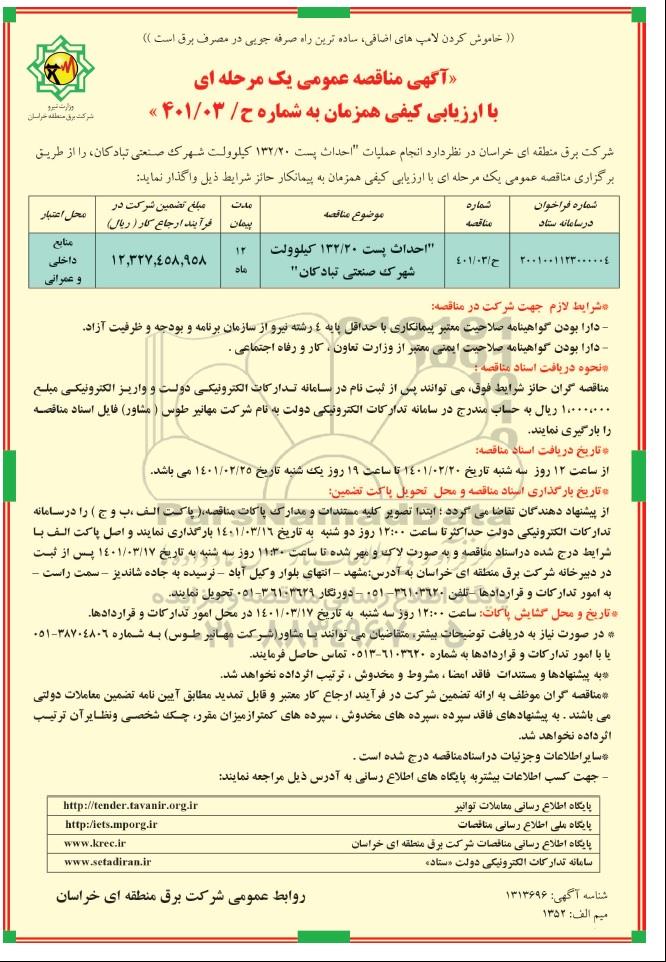 (( خاموش کردن لامپ های اضافی، ساده ترین راه صرفه جویی در مصرف برق است ))
وزارت نیرو
شرکت برق منطقه ای خراسان
«آگهی مناقصه عمومی یک مرحله ای
با ارزیابی کیفی همزمان به شماره ح/ ۴۰۱/۰۳ »
شرکت برق منطقه ای خراسان در نظردارد انجام عملیات "احداث پست ۱۳۲/۲۰ کیلوولت شهرک صنعتی تبادکان، را از طریق
برگزاری مناقصه عمومی یک مرحله ای با ارزیابی کیفی همزمان به پیمانکار حائز شرایط ذیل واگذار نماید:
شماره فراخوان درسامانه ستاد | شماره مناقصه | موضوع مناقصه | مدت پیمان | مبلغ تضمین شرکت در فرآیند ارجاع کار ( ریال) | محل اعتبار
۲۰۰۱۰۰۱۱۲۳۰۰۰۰۰۴ | ح/۴۰۱/۰۳ | "احداث پست ۱۳۲/۲۰ کیلوولت شهرک صنعتی تبادکان" | ۱۲ ماه | ۱۲,۳۲۷,۴۵۸,۹۵۸ | منابع داخلی و عمرانی
*شرایط لازم جهت شرکت در مناقصه:
– دارا بودن گواهینامه صلاحیت معتبر پیمانکاری با حداقل پایه ۴ رشته نیرو از سازمان برنامه و بودجه و ظرفیت آزاد.
– دارا بودن گواهینامه صلاحیت ایمنی معتبر از وزارت تعاون ، کار و رفاه اجتماعی .
*نحوه دریافت اسناد مناقصه :
مناقصه گران حائز شرایط فوق، می توانند پس از ثبت نام در سامانه تدارکات الکترونیکی دولت و واریز الکترونیکی مبلغ
۱,۰۰۰,۰۰۰ ریال به حساب مندرج در سامانه تدارکات الکترونیکی دولت به نام شرکت مهانیر طوس ( مشاور) فایل اسناد مناقصه
را بارگیری نمایند.
*تاریخ دریافت اسناد مناقصه:
از ساعت ۱۲ روز سه شنبه تاریخ ۱۴۰۱/۰۲/۲۰ تا ساعت ۱۹ روز یک شنبه تاریخ ۱۴۰۱/۰۲/۲۵ می باشد.
*تاریخ بارگذاری اسناد مناقصه و محل تحویل پاکت تضمین:
از پیشنهاد دهندگان تقاضا می گردد ؛ ابتدا تصویر کلیه مستندات و مدارک پاکات مناقصه،( پاکت الف ،ب و ج ) را درسامانه
تدارکات الکترونیکی دولت حداکثر تا ساعت ۱۲:۰۰ روز دو شنبه به تاریخ ۱۴۰۱/۰۳/۱۶ بارگذاری نمایند و اصل پاکت الف با
شرایط درج شده دراسناد مناقصه و به صورت لاک و مهر شده تا ساعت ۱۱:۳۰ روز سه شنبه به تاریخ ۱۴۰۱/۰۳/۱۷ پس از ثبت
در دبیرخانه شرکت برق منطقه ای خراسان به آدرس:مشهد – انتهای بلوار وکیل آباد – نرسیده به جاده شاندیز – سمت راست –
به امور تدارکات و قراردادها –تلفن ۳۶۱۰۳۶۲۰–۰۵۱ – دورنگار ۳۶۱۰۳۶۲۹–۰۵۱ تحویل نمایند.
*تاریخ و محل گشایش پاکات: ساعت ۱۲:۰۰ روز سه شنبه به تاریخ ۱۴۰۱/۰۳/۱۷ در محل امور تدارکات و قراردادها.
* در صورت نیاز به دریافت توضیحات بیشتر، متقاضیان می توانند با مشاور(شرکت مهانیر طوس) به شماره ۳۸۷۰۴۸۰۶–۰۵۱
یا با امور تدارکات و قراردادها به شماره ۶۱۰۳۶۲۰–۰۵۱۳ تماس حاصل فرمایند.
*به پیشنهادها و مستندات فاقد امضا ، مشروط و مخدوش ، ترتیب اثرداده نخواهد شد.
*مناقصه گران موظف به ارائه تضمین شرکت در فرآیند ارجاع کار معتبر و قابل تمدید مطابق آیین نامه تضمین معاملات دولتی
می باشند . به پیشنهادهای فاقد سپرده ،سپرده های مخدوش ، سپرده های کمترازمیزان مقرر، چک شخصی ونظایرآن ترتیب
اثرداده نخواهد شد.
*سایراطلاعات وجزئیات دراسنادمناقصه درج شده است .
– جهت کسب اطلاعات بیشتربه پایگاه های اطلاع رسانی به آدرس ذیل مراجعه نمایند:
پایگاه اطلاع رسانی معاملات توانیر | http://tender.tavanir.org.ir
پایگاه ملی اطلاع رسانی مناقصات | http:/iets.mporg.ir
پایگاه اطلاع رسانی مناقصات شرکت برق منطقه ای خراسان | www.krec.ir
سامانه تدارکات الکترونیکی دولت «ستاد» | www.setadiran.ir
شناسه آگهی: ۱۳۱۳۶۹۶
میم الف: ۱۳۵۲
روابط عمومی شرکت برق منطقه ای خراسان
ParsNamadData
۰۲۱-۸۸۳۴۹۶۷۰-۵